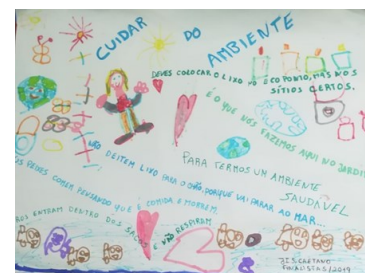 CUIDAR DO AMBIENTE
DEVES COLOCAR O LIXO NO ECOPONTO, MAS NOS
SÍTIOS CERTOS.
É O QUE NÓS FAZEMOS AQUI NO JARDIM
PARA TERMOS UM AMBIENTE
SAUDÁVEL
NÃO DEITEM LIXO PARA O CHÃO, PORQUE VAI PARAR AO MAR...
OS PEIXES COMEM PENSANDO QUE É COMIDA E MORREM.
ENTRAM DENTRO DOS SACOS E NÃO RESPIRAM.
FINALISTAS/2019